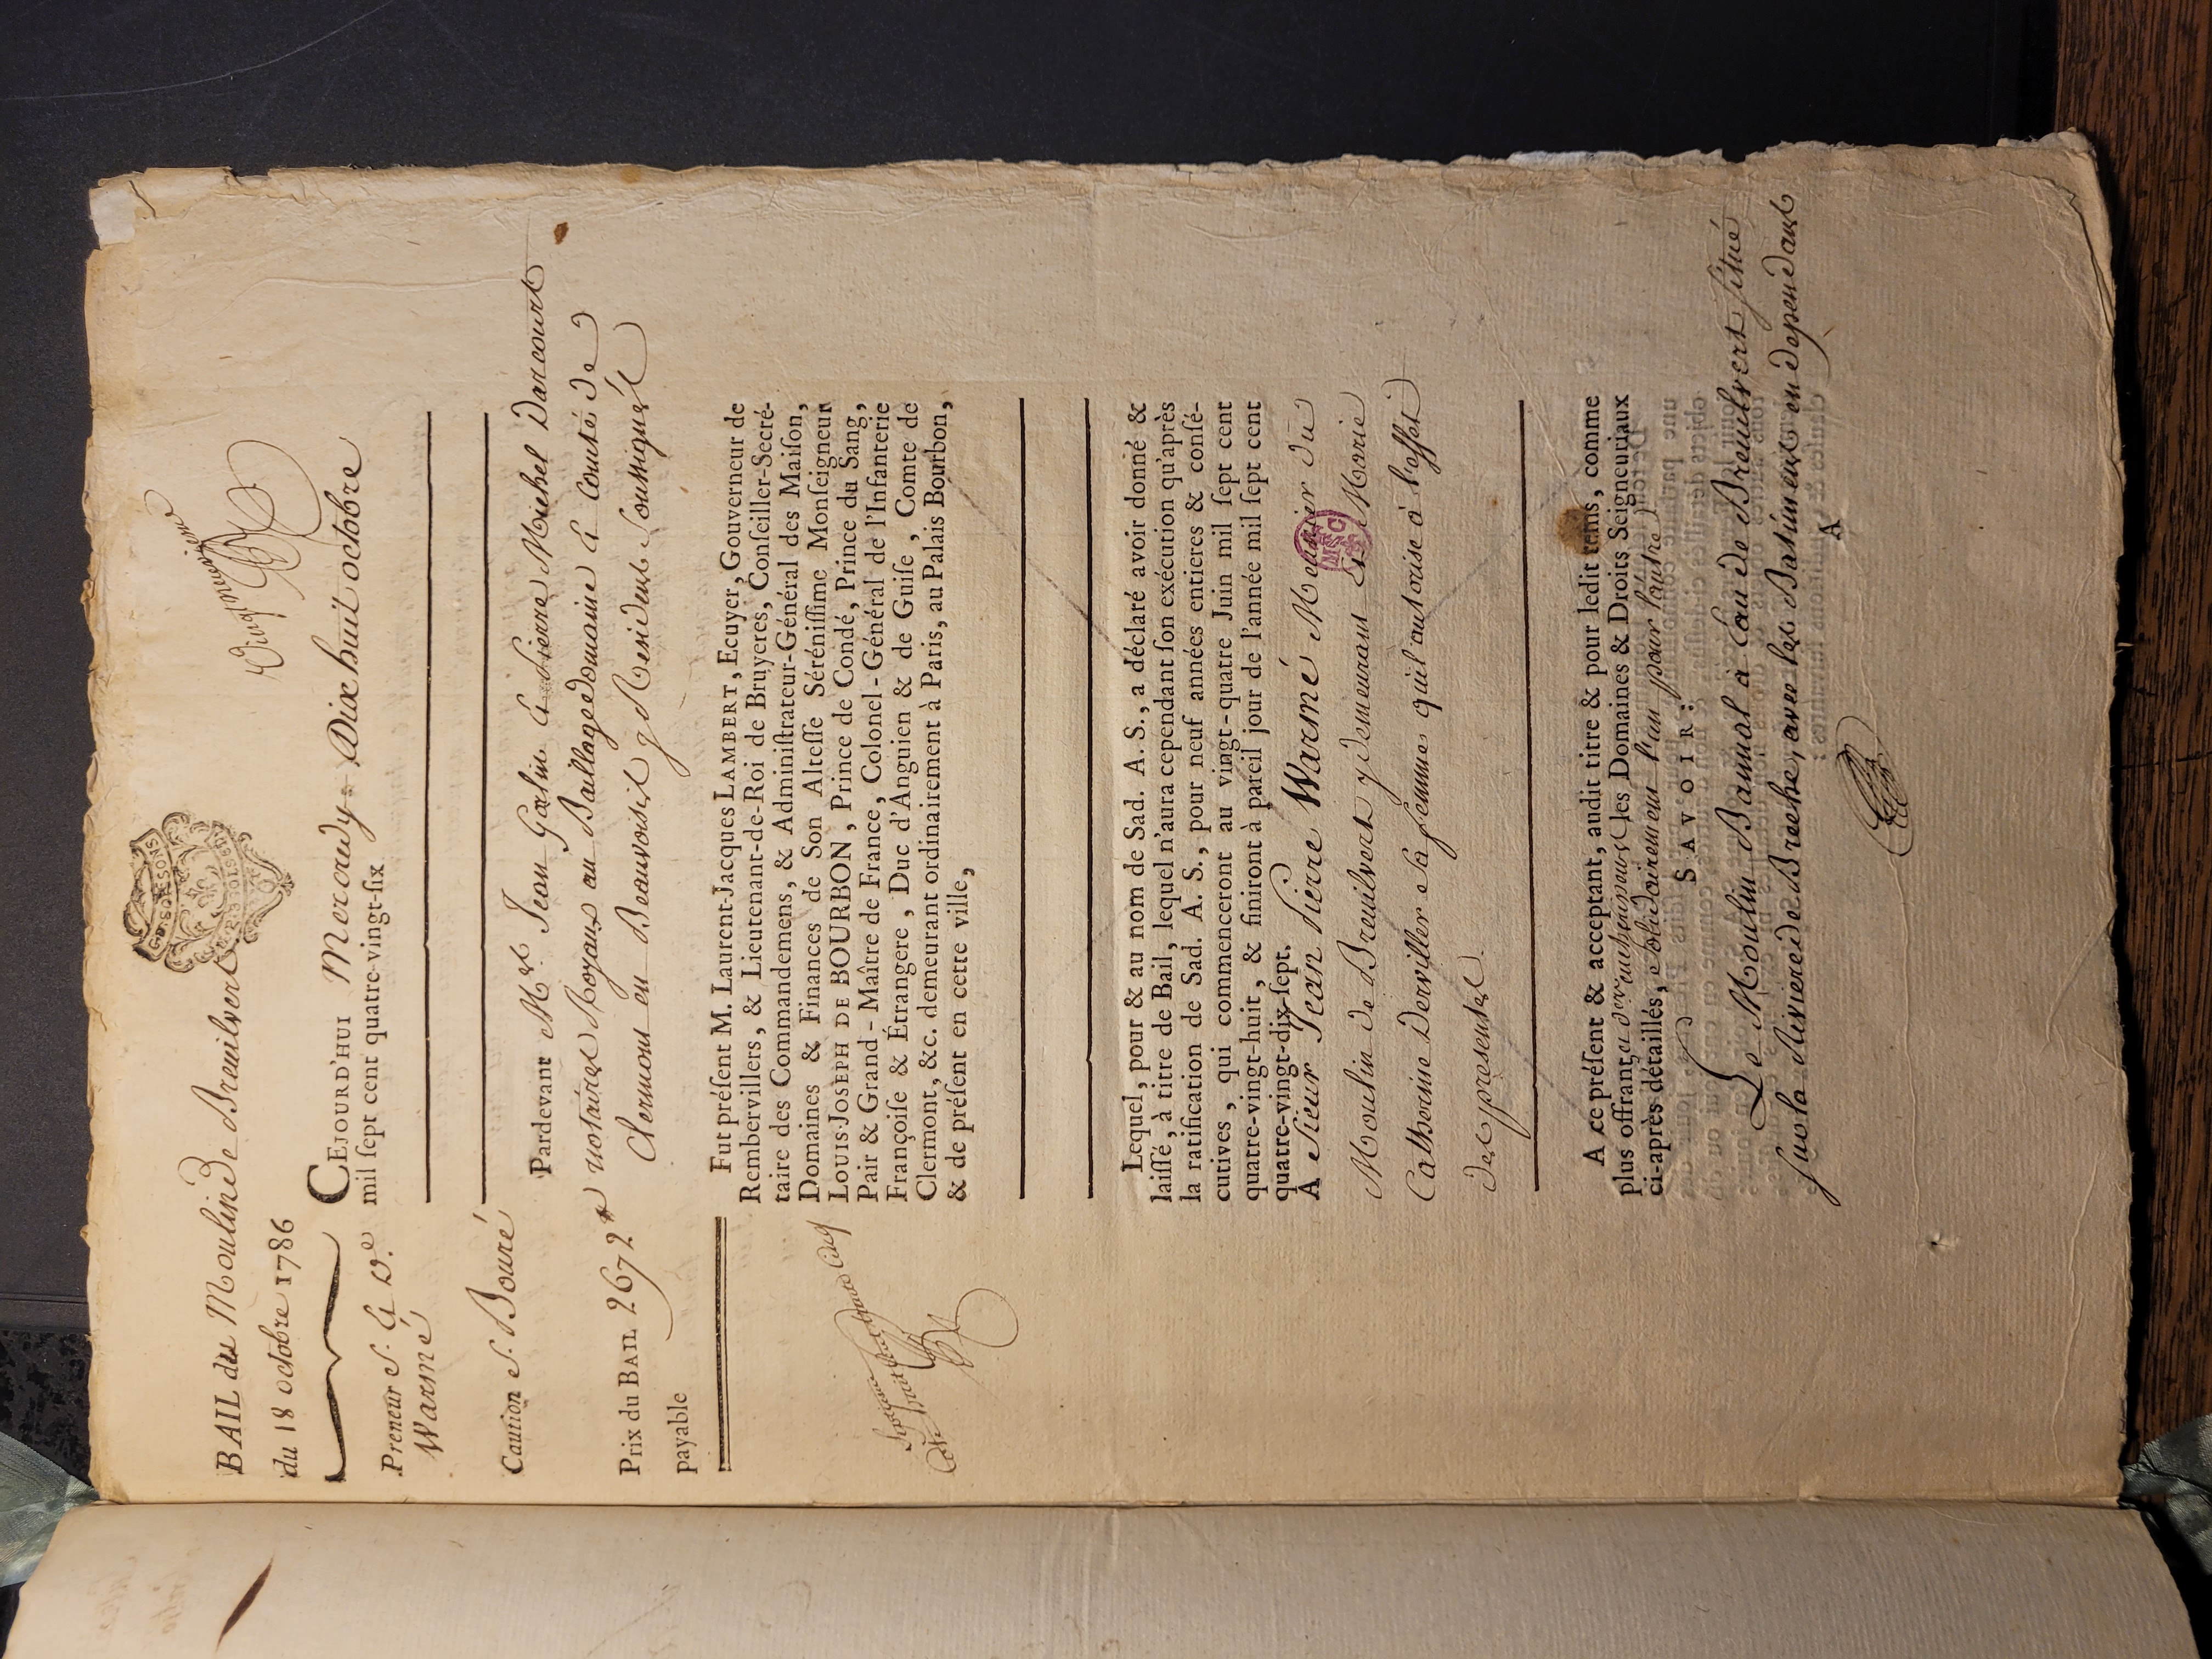 BAIL du Moulin de Breuilvert
du 18 octobre 1786
GEN DE SOISSONS
Vingt neuvieme
CEJOURD'HUI Mercredy Dix huit octobre
mil ſept cent quatre-vingt-ſix
Preneur S. & D.e
Warmé
Caution S. Bouré
Prix du BAIL 2672
payable
Pardevant Mes. Jean Gaſlin & Pierre Michel Darcourt
notaires Royaux au Baillage domaine & Comté de
Clermont en Beauvoisis y Residents Soussignés
Fut préſent M. Laurent-Jacques LAMBERT, Ecuyer, Gouverneur de
Rembervillers, & Lieutenant-de-Roi de Bruyeres, Conſeiller-Secré-
taire des Commandemens, & Adminiſtrateur-Général des Maiſon,
Domaines & Finances de Son Alteſſe Séréniſſime Monſeigneur
LOUIS-JOSEPH DE BOURBON, Prince de Condé, Prince du Sang,
Pair & Grand-Maître de France, Colonel-Général de l'Infanterie
Françoiſe & Étrangere, Duc d'Anguien & de Guiſe, Comte de
Clermont, &c. demeurant ordinairement à Paris, au Palais Bourbon,
& de préſent en cette ville,
Lequel, pour & au nom de Sad. A. S., a déclaré avoir donné &
laiſſé, à titre de Bail, lequel n'aura cependant ſon exécution qu'après
la ratification de Sad. A. S., pour neuf années entieres & conſé-
cutives, qui commenceront au vingt-quatre Juin mil ſept cent
quatre-vingt-huit, & finiront à pareil jour de l'année mil ſept cent
quatre-vingt-dix-ſept.
A Sieur Jean Pierre Warmé Meunier du
Moulin de Breuilvert y demeurant & Marie
Catherine Derviller Sa femme qu'il autorise à l'effet
des presentes.
A ce préſent & acceptant, audit titre & pour ledit tems, comme
plus offrant & dernier encherisseurs les Domaines & Droits Seigneuriaux
ci-après détaillés, Solidairement l'un pour l'autre
SAVOIR:
Le Moulin Bannal à Eau de Breuilvert Situé
Sur la Riviere de Breche, avec les Batiments en dépendant
A